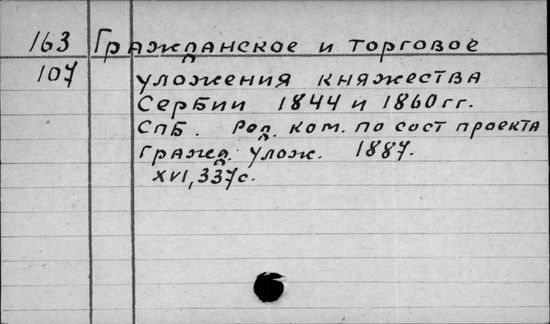 163 Гражданское и торговое
107 уложения княжества
Сербии 1844 и 1860 гг.
СПБ. Ред. ком. по сост проекта
Гражд. Улож. 1887.
XVI, 337 с.